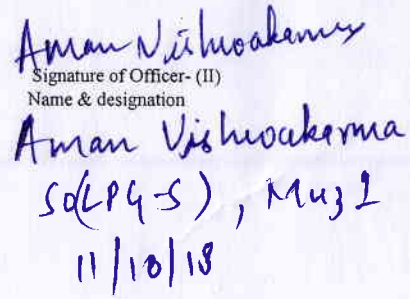 Aman Vishwakarma
Signature of Officer- (II)
Name & designation
Aman Vishwakarma
SO(LPG-S), Muz 1
11/10/18